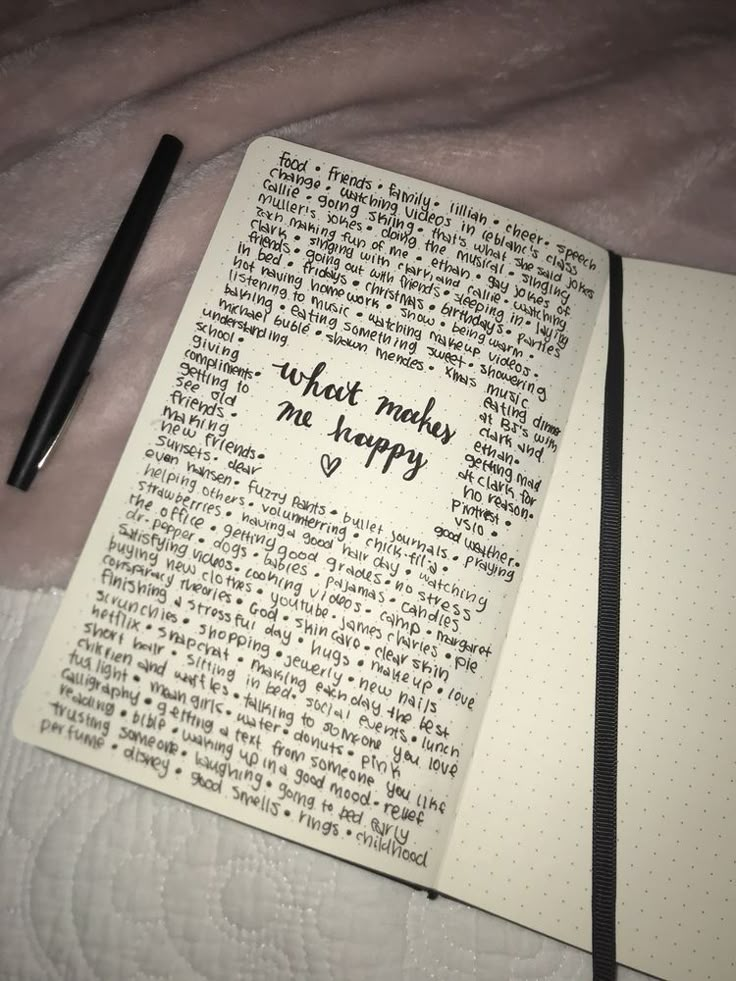 food • friends • family • lillian • cheer • speech
change • watching videos in leblanc's class
callie • going skiing • that's what she said jokes
muller's jokes • doing the musical • singing
zach making fun of me • ethan • gay jokes of
clark • singing with clark and callie • watching
friends • going out with friends • sleeping in • laying
in bed • fridays • christmas • birthdays • parties
not having homework • snow • being warm •
listening to music • watching makeup videos •
baking • eating something sweet • showering
michael bublé • shawn mendes • xmas music
understanding
school •
giving
compliments •
getting to
see old
friends •
making
new friends •
sunsets • dear
what makes
me happy
♡
eating dinner
at BJ's with
clark and
ethan •
getting mad
at clark for
no reason •
pintrest •
vsco •
good weather •
evan hansen • fuzzy pants • bullet journals • praying
helping others • volunterring • chick-fil-a •
strawberries • having a good hair day • watching
the office • getting good grades • no stress
dr. pepper • dogs • babies • pajamas • candles
satisfying videos • cooking videos • camp • margaret
buying new clothes • youtube • james charles • pie
conspiracy theories • God • skin care • clear skin
finishing a stressful day • hugs • makeup • love
scrunchies • shopping • jewerly • new nails
netflix • snapchat • making each day the best
short hair • sitting in bed • social events • lunch
chikfien and waffles • talking to someone you love
light • mean girls • water • donuts • pink
calligraphy • getting a text from someone you like
reading • bible • waking up in a good mood • relief
trusting someone • laughing • going to bed early
perfume • disney • good smells • rings • childhood